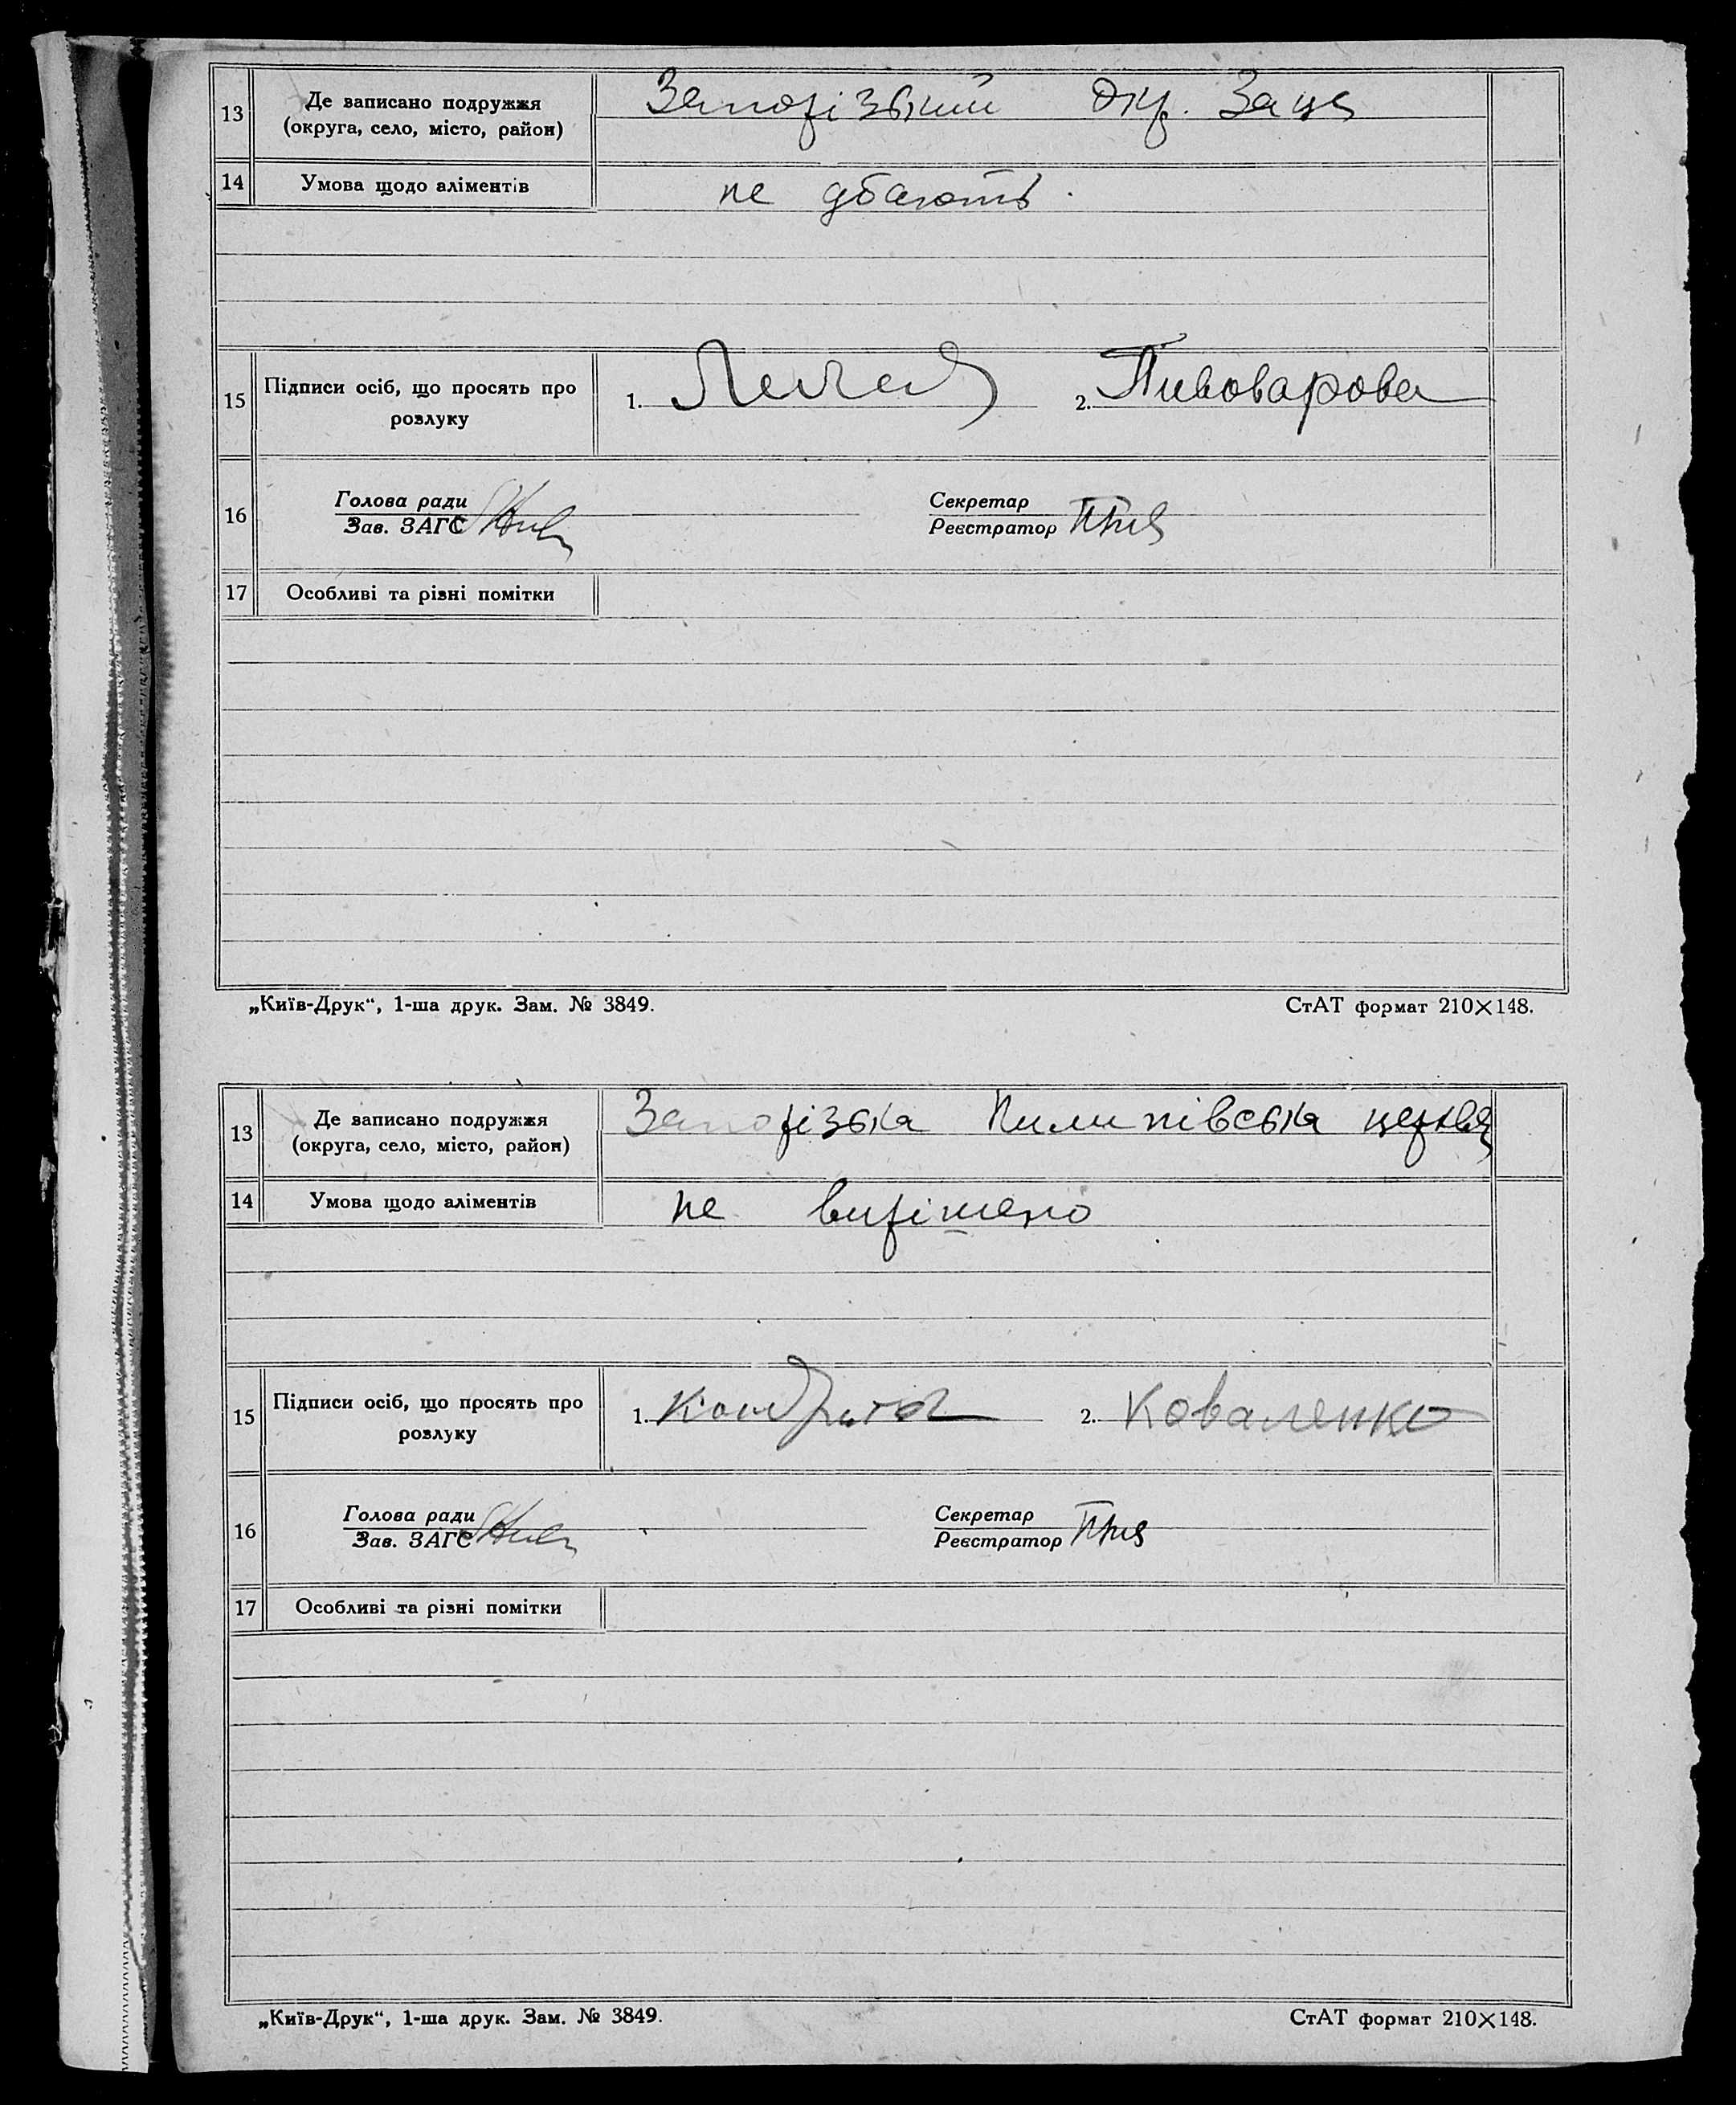 13 Де записано подружжя Запорізький Окр. Загс
(округа, село, місто, район)
14 Умова щодо аліментів не дбають.
15 Підписи осіб, що просять про 1. 2. Пивоварова
розлуку
16 Голова ради Секретар
Зав. ЗАГС Реєстратор
17 Особливі та різні помітки
„Київ-Друк“, 1-ша друк. Зам. № 3849. СтАТ формат 210×148.
13 Де записано подружжя Запорізька Пилипівська церква
(округа, село, місто, район)
14 Умова щодо аліментів не вирішено
15 Підписи осіб, що просять про 1. 2. Коваленко
розлуку
16 Голова ради Секретар
Зав. ЗАГС Реєстратор
17 Особливі та різні помітки
„Київ-Друк“, 1-ша друк. Зам. № 3849. СтАТ формат 210×148.